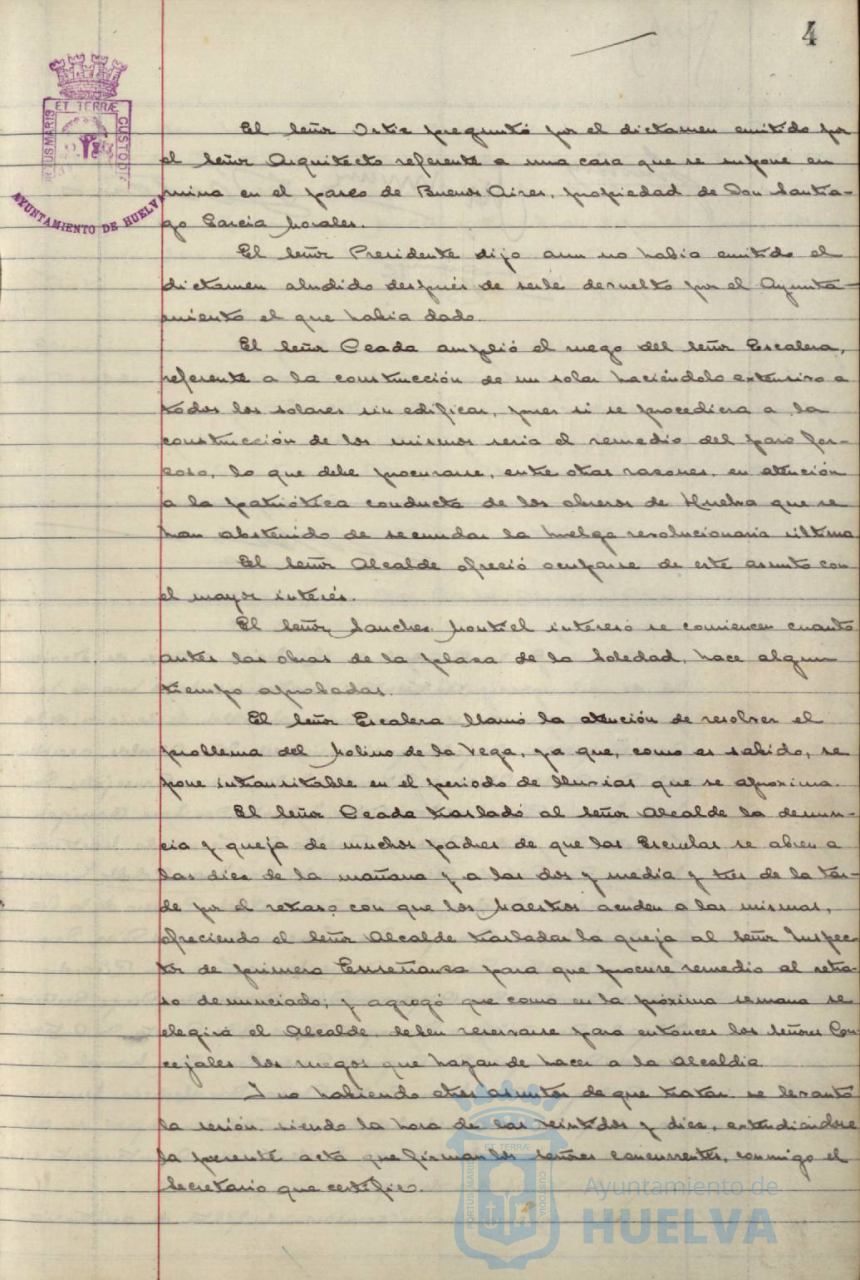 4
ET TERRÆ
PORTUS MARIS
CUSTODIA
AYUNTAMIENTO DE HUELVA
El señor Ortiz preguntó por el dictamen emitido por
el señor Arquitecto referente a una casa que se supone en
ruina en el paseo de Buenos Aires, propiedad de Don Santia-
go García Morales.
El señor Presidente dijo aun no habia emitido el
dictamen aludido después de serle devuelto por el Ayunta-
miento el que habia dado.
El señor Ceada amplió el ruego del señor Escalera,
referente a la construcción de un solar haciéndolo extensivo a
todos los solares sin edificar, pues si se procediera a la
construcción de los mismos seria el remedio del paro for-
zoso, lo que debe procurarse, entre otras razones, en atención
a la patriótica conducta de los obreros de Huelva que se
han abstenido de secundar la huelga revolucionaria última
El señor Alcalde ofreció ocuparse de este asunto con
el mayor interés.
El señor Sanchez Montiel interesó se comiencen cuanto
antes las obras de la plaza de la Soledad, hace algun
tiempo aprobadas.
El señor Escalera llamó la atención de resolver el
problema del Molino de la Vega, ya que, como es sabido, se
pone intransitable en el periodo de lluvias que se aproxima.
El señor Ceada trasladó al señor Alcalde la denun-
cia y queja de muchos padres de que las Escuelas se abren a
las diez de la mañana y a las dos y media y tres de la tar-
de por el retraso con que los Maestros acuden a las mismas,
ofreciendo el señor Alcalde trasladar la queja al señor Inspec-
tor de primera Enseñanza para que procure remedio al retra-
so denunciado; y agregó que como en la próxima semana se
elegirá el Alcalde, deben reservarse para entonces los señores Con-
cejales los ruegos que hayan de hacer a la Alcaldia.
Y no habiendo otros asuntos de que tratar se levantó
la sesión siendo la hora de las veintidos y diez, extendiéndose
la presente acta que firman los señores concurrentes, conmigo el
Secretario que certifico.
ET TERRÆ
PORTUS MARIS
CUSTODIA
Ayuntamiento de
HUELVA